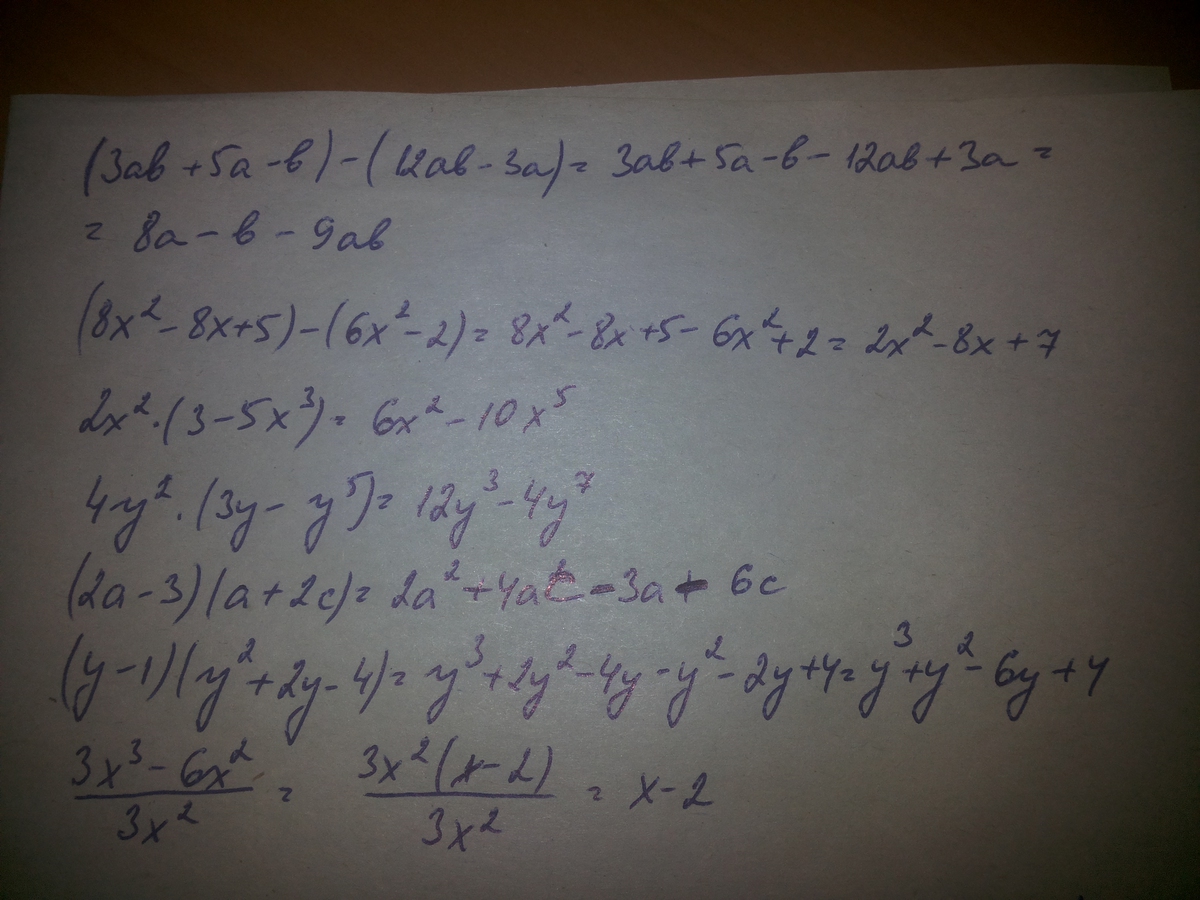 (3ab + 5a - b) - (12ab - 3a) = 3ab + 5a - b - 12ab + 3a =
= 8a - b - 9ab
(8x² - 8x + 5) - (6x² - 2) = 8x² - 8x + 5 - 6x² + 2 = 2x² - 8x + 7
2x² · (3 - 5x³) = 6x² - 10x⁵
4y² · (3y - y⁵) = 12y³ - 4y⁷
(2a - 3)(a + 2c) = 2a² + 4ac - 3a - 6c
(y - 1)(y² + 2y - 4) = y³ + 2y² - 4y - y² - 2y + 4 = y³ + y² - 6y + 4
(3x³ - 6x²)/(3x²) = (3x²(x - 2))/(3x²) = x - 2